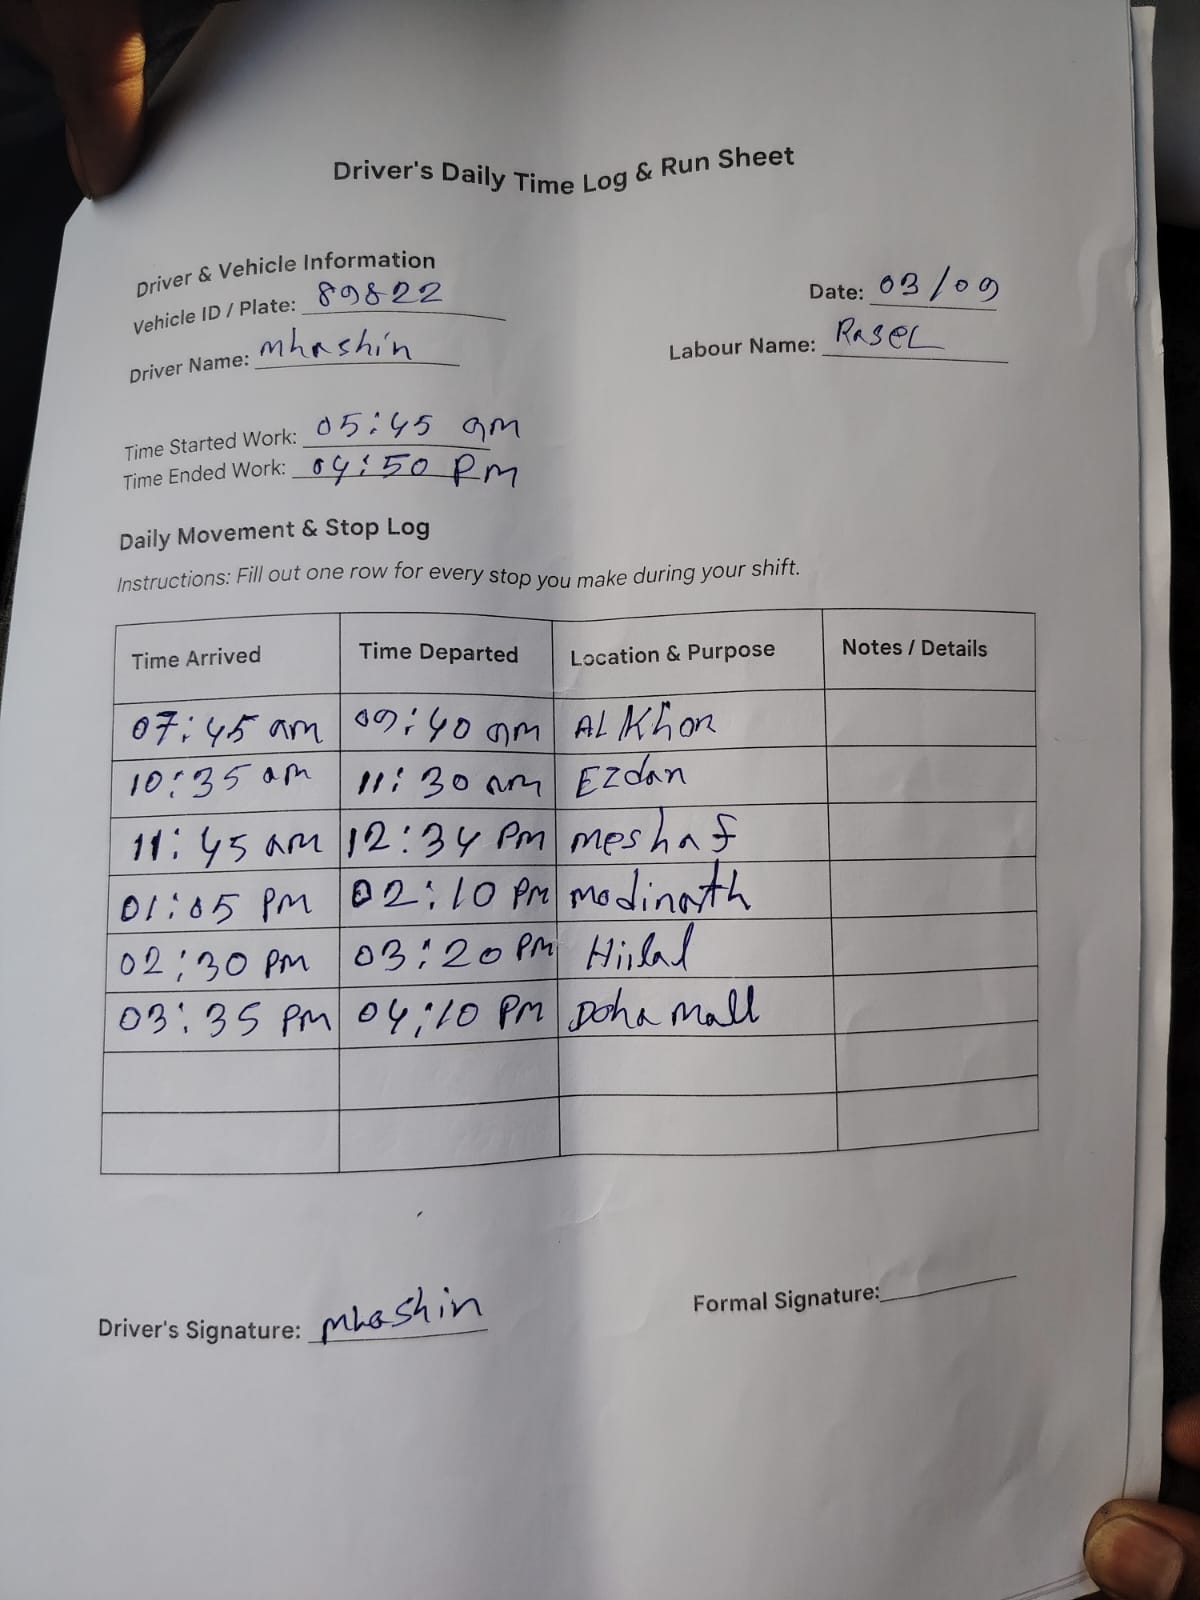 Driver's Daily Time Log & Run Sheet
Driver & Vehicle Information
Vehicle ID / Plate: 89822
Date: 03/09
Driver Name: mhashin
Labour Name: RaseL
Time Started Work: 05:45 am
Time Ended Work: 04:50 Pm
Daily Movement & Stop Log
Instructions: Fill out one row for every stop you make during your shift.
Time Arrived Time Departed Location & Purpose Notes / Details
07:45 am 09:40 am AL Khor
10:35 am 11:30 am Ezdan
11:45 am 12:34 Pm meshaf
01:05 PM 02:10 Pm madinath
02:30 PM 03:20 PM Hiilal
03:35 PM 04:10 PM Doha mall
Driver's Signature: mhashin
Formal Signature: